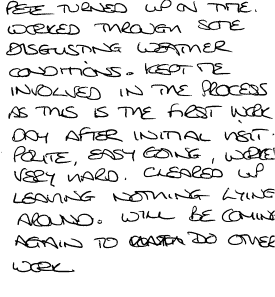 PETE TURNED UP ON TIME.
WORKED THROUGH SOME
DISGUSTING WEATHER
CONDITIONS. KEPT ME
INVOLVED IN THE PROCESS
AS THIS IS THE FIRST WORK
DAY AFTER INITIAL VISIT.
POLITE, EASY GOING, WORKE
VERY HARD. CLEARED UP
LEAVING NOTHING LYING
AROUND. WILL BE COMING
AGAIN TO DO OTHER
WORK.